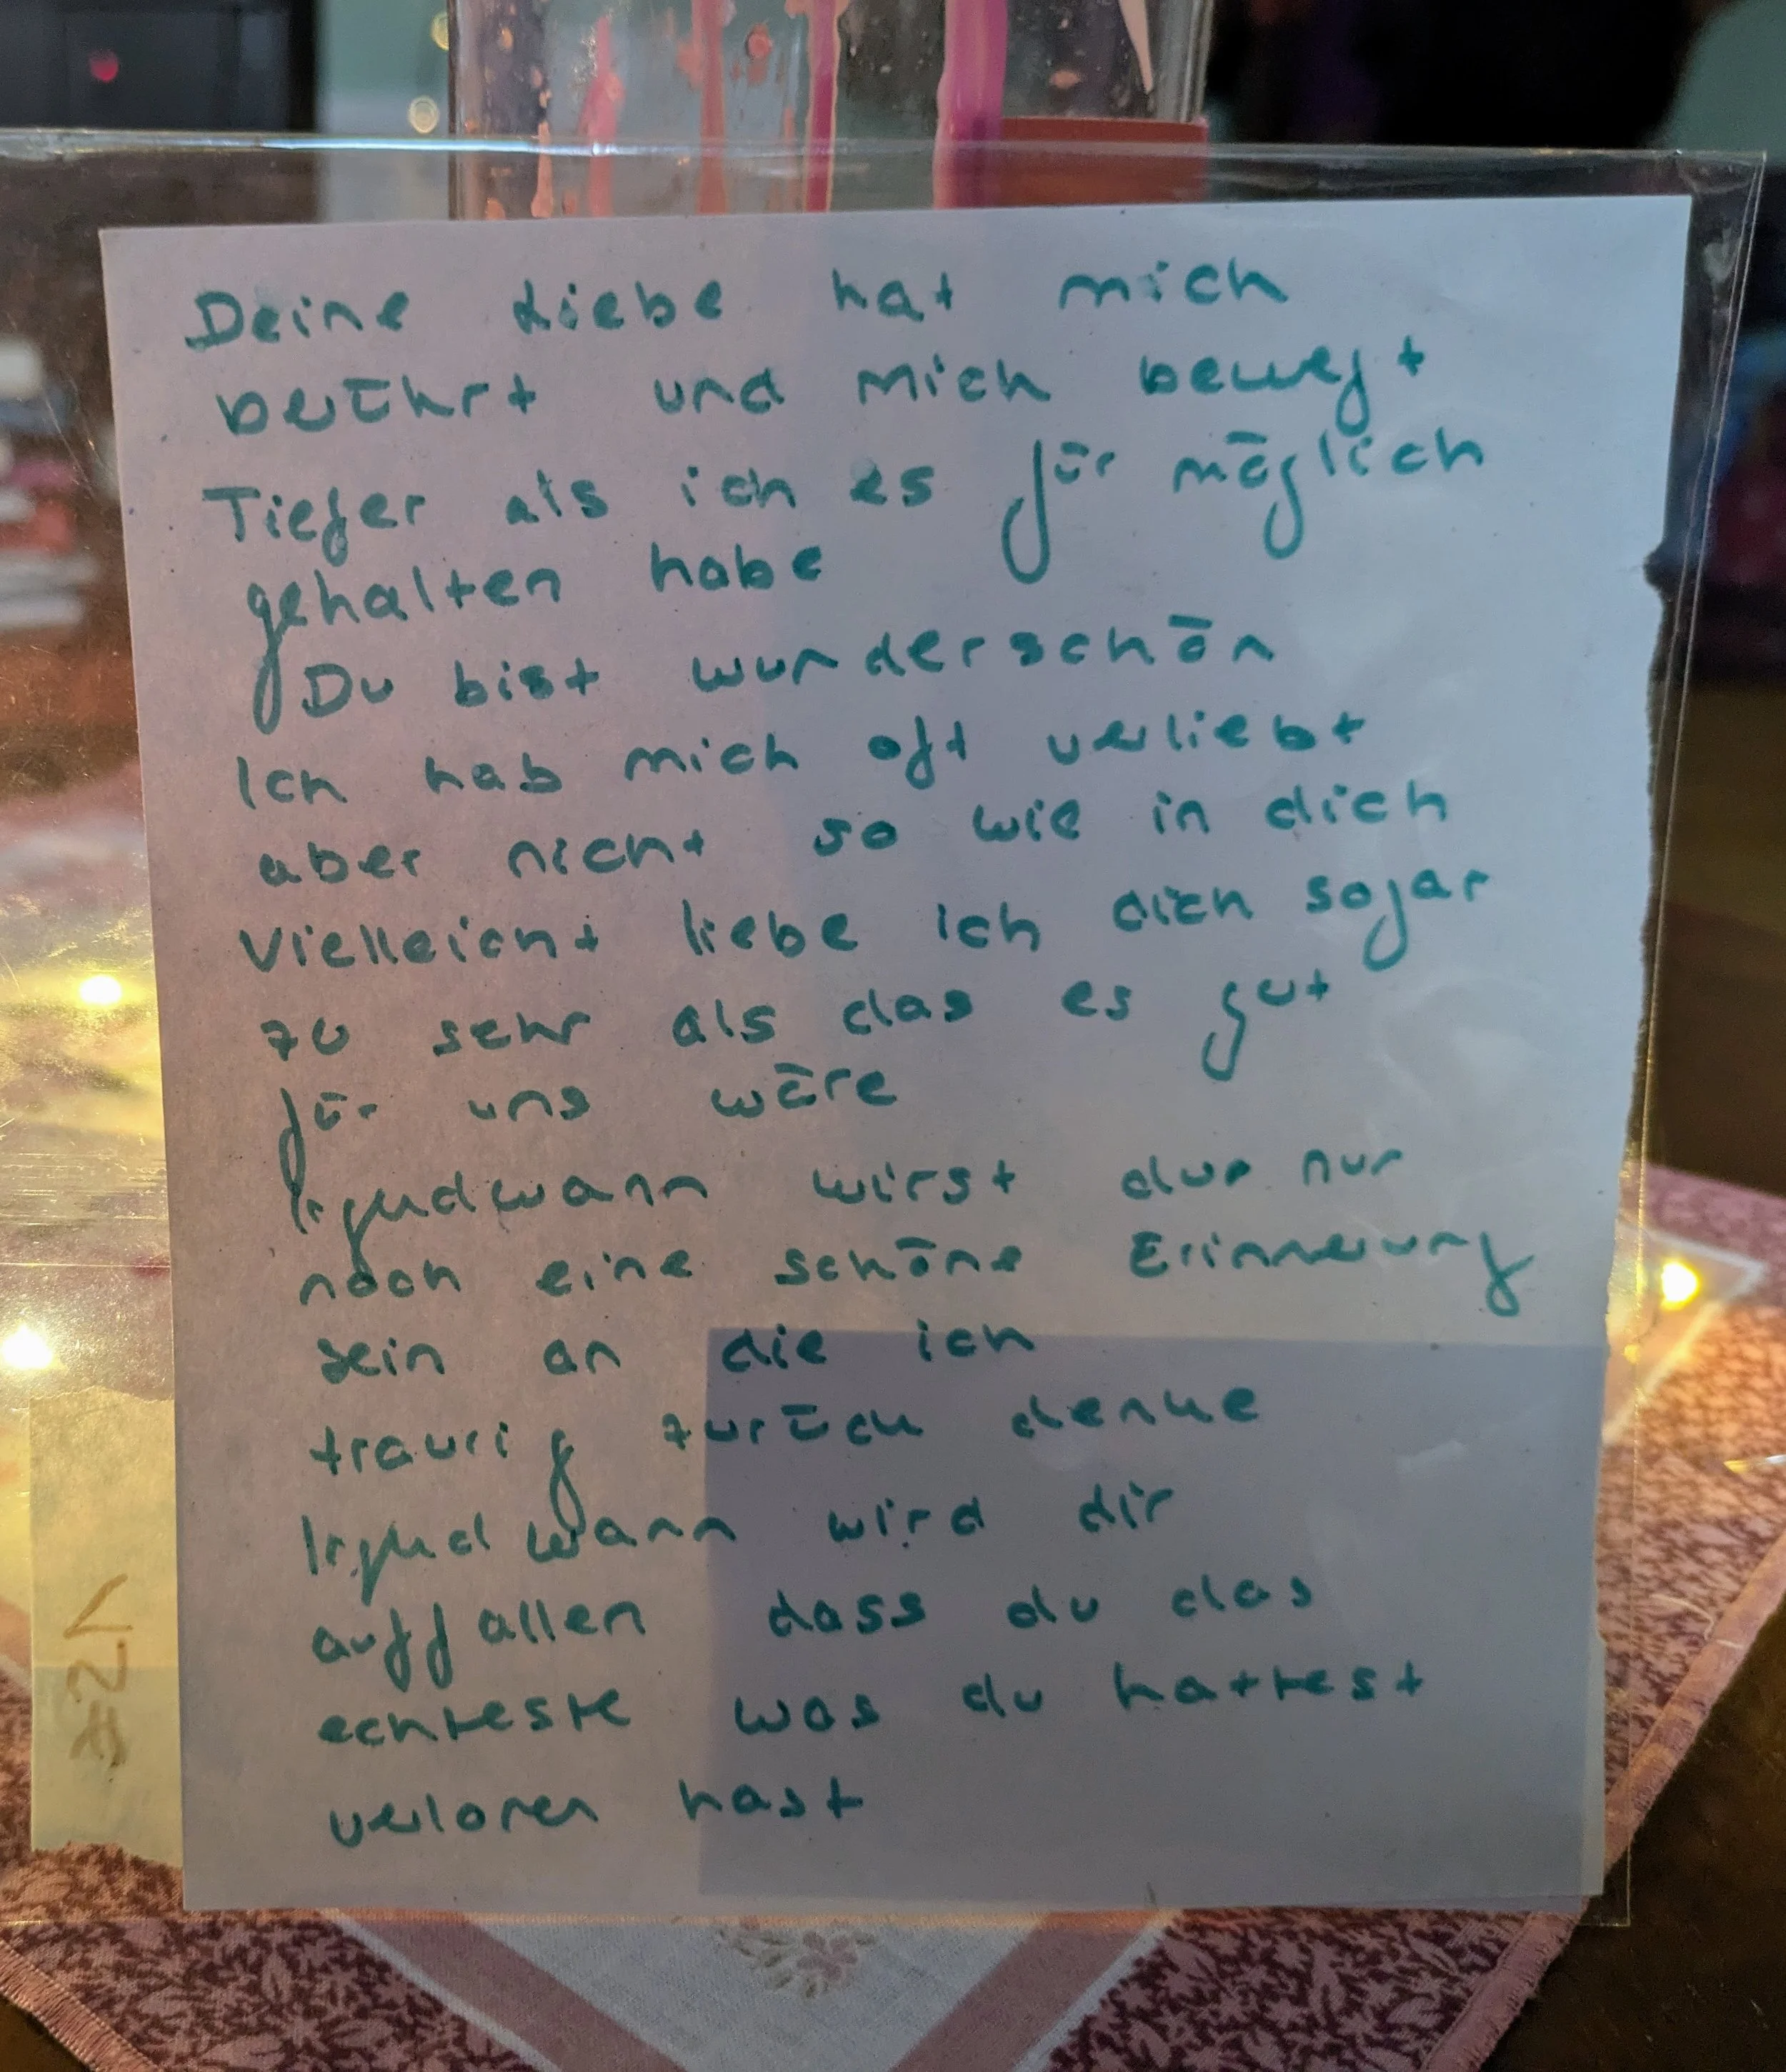 Deine Liebe hat mich
berührt und mich bewegt
Tiefer als ich es für möglich
gehalten habe
Du bist wunderschön
Ich hab mich oft verliebt
aber nicht so wie in dich
Vielleicht liebe ich dich sogar
zu sehr als das es gut
für uns wäre
Irgendwann wirst du nur
noch eine schöne Erinnerung
sein an die ich
traurig zurück denke
Irgendwann wird dir
auffallen dass du das
echteste was du hattest
verloren hast